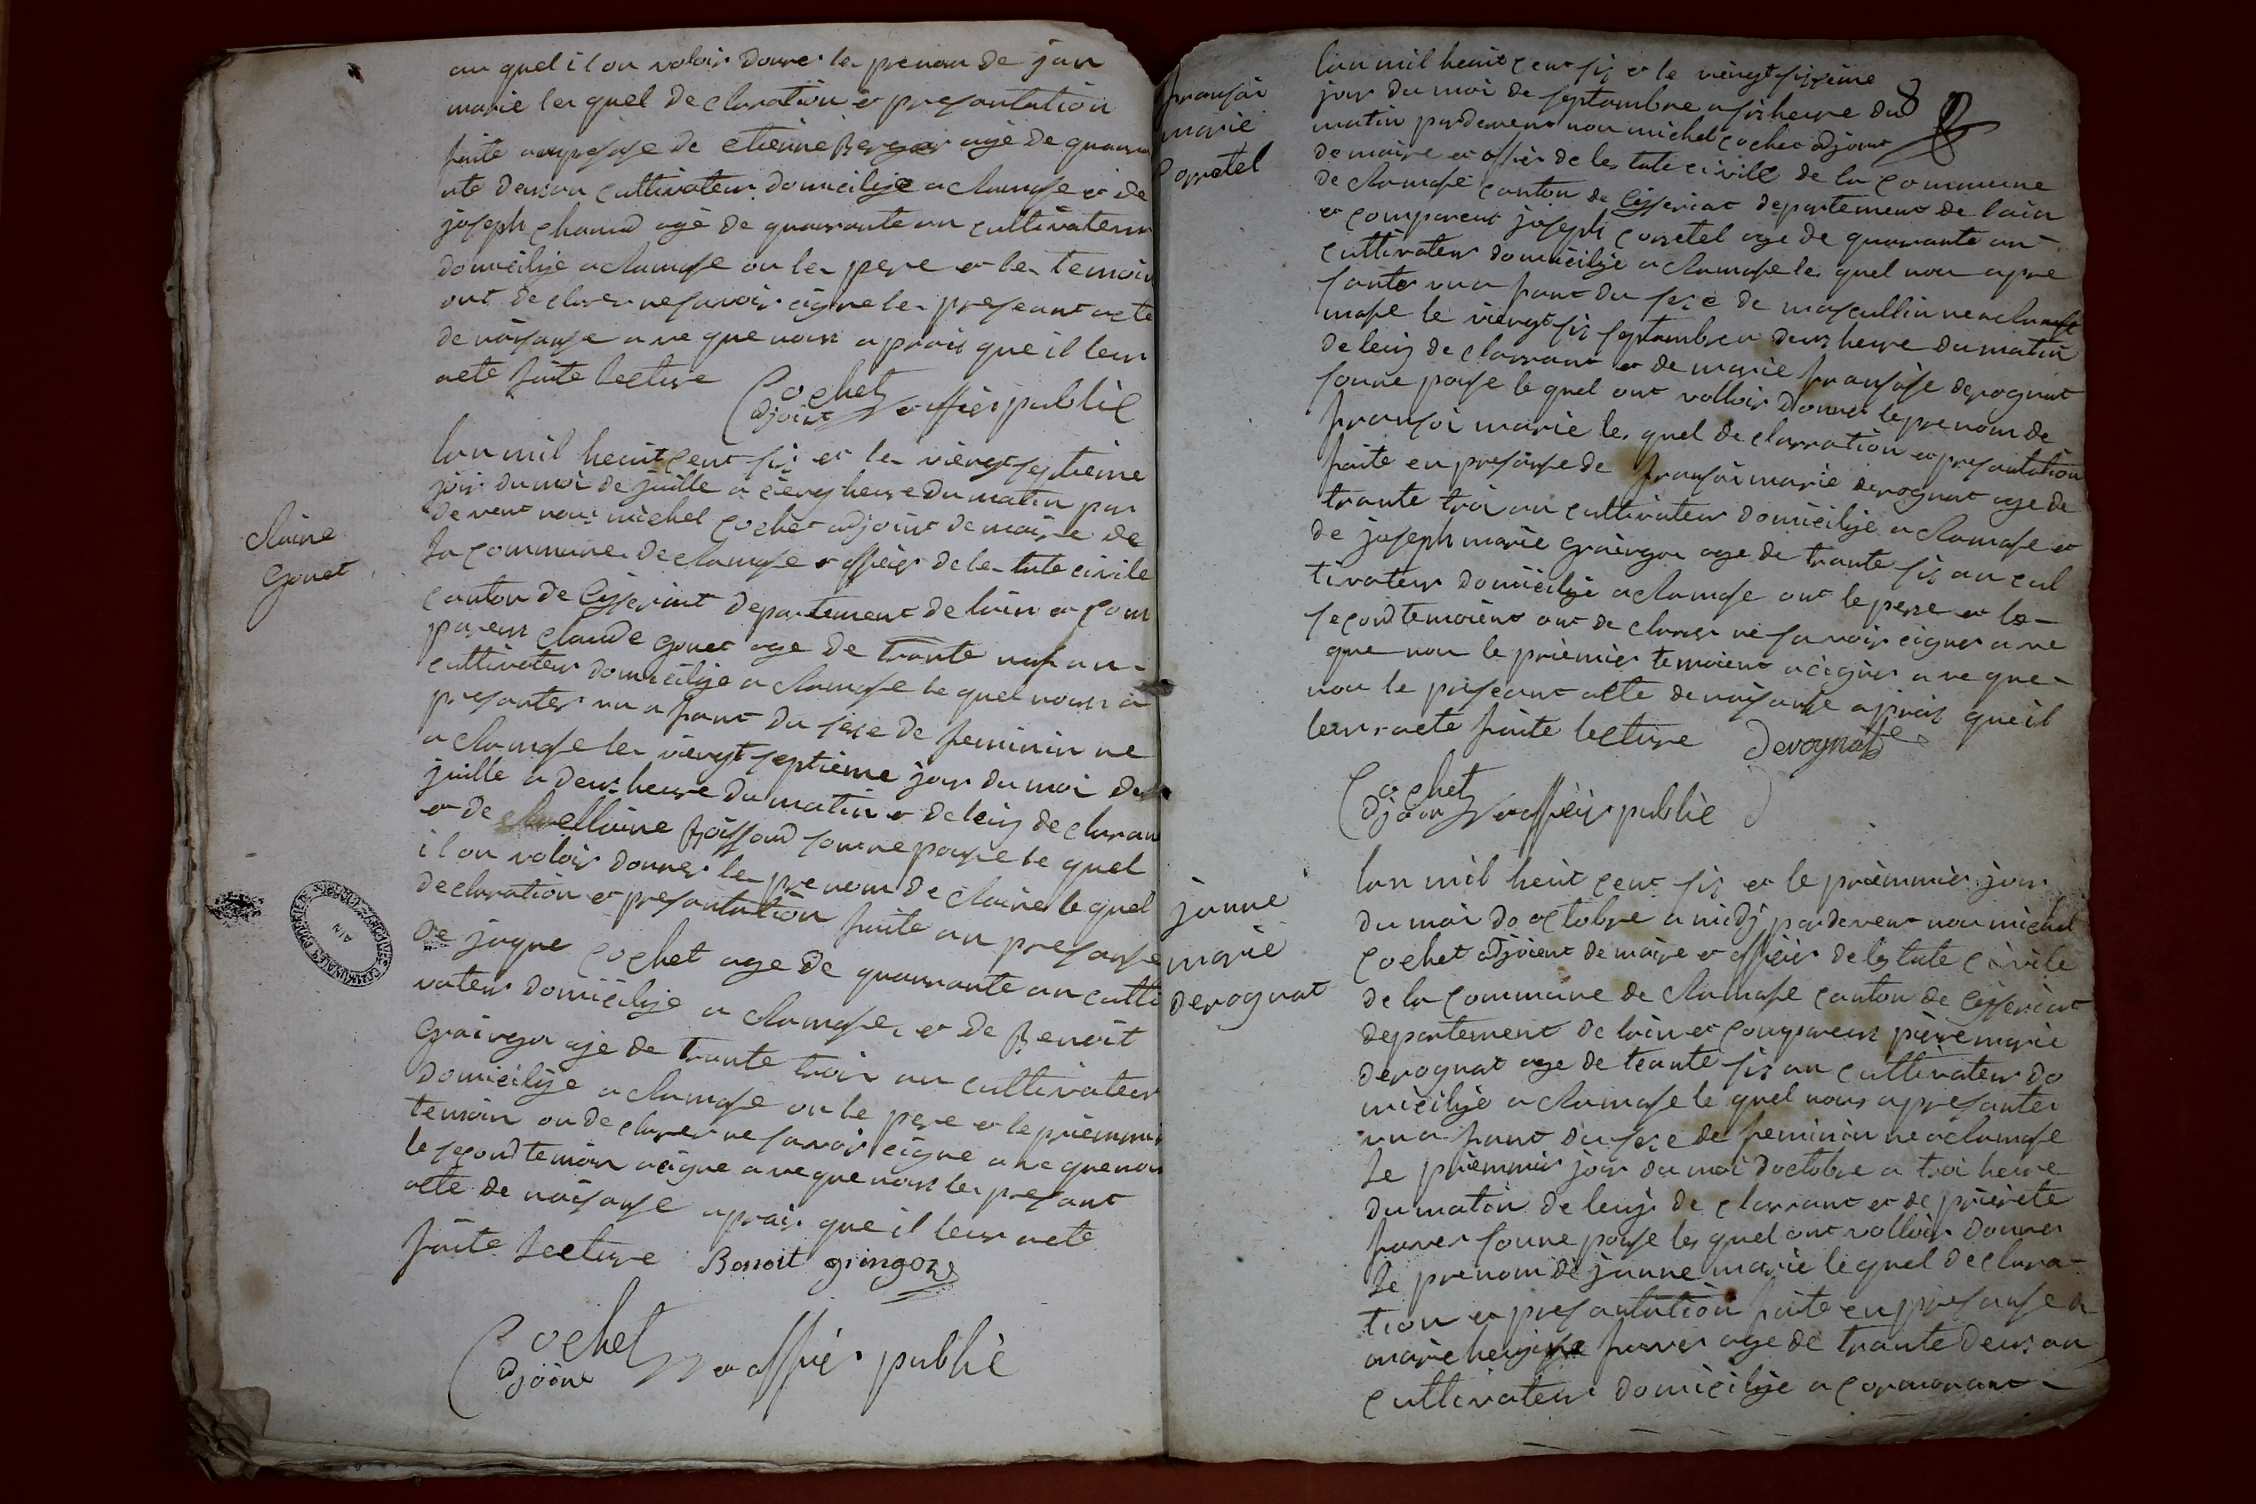 au quel il on voloir donner le prenom de jan
marie les quel declaration et presantation
faite au presase de etienne Berger agé de quara
nte deux an cultivateur domicilije a chamase et de
joseph chanud agé de quarante an cultivateur
domicilije a chamase on le pere et les temoin
ont declarer ne savoir cigne le preseant acte
de naisanse a ve que nous aprais que il leur
a ete faite lecture Cochet
adjoint et offisier publiC
lan mil heuit cent sis et le viengt septieme
jour du moi de juille a cienq heure du matin par
devent nous michel Cochet adjoint de maire de
la commune de chamase et offisier de le tate civile
canton de Cisseriat departement de lain et com
parem claude gonet age de trante nuf an
cultivateur domicilije a chamase le quel nous a
presanter un a fant du sexe de feminin ne
a chamase le viengt septieme jour du moi de
juille a deux heure du matin et de leuij declaran
et de Boissond sonne pouse le quel
il on voloir donner le prenom de claire le quel
declaration et presantation faite au presanse
de jaque Cochet age de quarrante an culti
vateur domicilije a chamase et de Benoit
graingon aje de trante troix an cultivateur
domicilije a chamase on le pere et le priemmier
temoin on declarer ne savoir cigne a ve que nous
le segond temoin a cigne a ve que nous le presant
acte de naisanse aprais que il leur a ete
faite lecture Benoit gringoz
Cochet
adjoint et offisier publiC
claire
gonet
ARCHIVES COMMUNALES
AIN
8
fransoi
marie
Corretel
lan mil heuit cent sis et le viengt sisieme
jour du moi de septambre a sis heure du
matin pardevent nou michel Cochet adjoint
de maire et offisier de les tate civille de la commune
de chamase canton de Cisseriat departement de lain
et comparent joseph corretel age de quarante an
cultivateur domicilije a chamase les quel nou a pre
santer un a fant du sexe de mascullin ne a
mase le viengt sis septambre a deux heure du matin
de leuij declarrant et de marie fransoise derognat
sonne pouse le quel ont volloir donner le prenom de
fransoi marie les quel declarration et presantation
faite en presanse de fransoi marie derognat age de
trante troi an cultivateur domicilije a chamase et
de joseph marie graingon age de trante sis an cul
tivateur domicilije a chamase ont le pere et le
segond temoient ont declarer ne savoir cigner a ve
que nou le priemier temoient a cigner a ve que
nou le preseant acte de naisanse aprais que il
leur a ete faite lecture derognat
Cochet
adjoint et offisier publiC
janne
marie
derognat
lan mil heuit cent sis et le priemmier jour
du moi do octobre a midj pardevent nou michel
Cochet adjoient de maire et offisier de les tate civile
de la commune de chamase canton de Cisseriat
departement de lain et comparent pierre marie
derognat age de trante sis an cultivateur do
micilije a chamase le quel nous a presanter
un a fant du sexe de feminin ne a chamase
le priemmier jour du moi doctobre a troi heure
du matin de leuij declarrant et de pierrete
faver sonne pouse les quel ont volloir donner
le prenom de janne marie le quel declara
tion et presantation faite en presanse de
marie faver age de trante deux an
cultivateur domicilije a cormorant